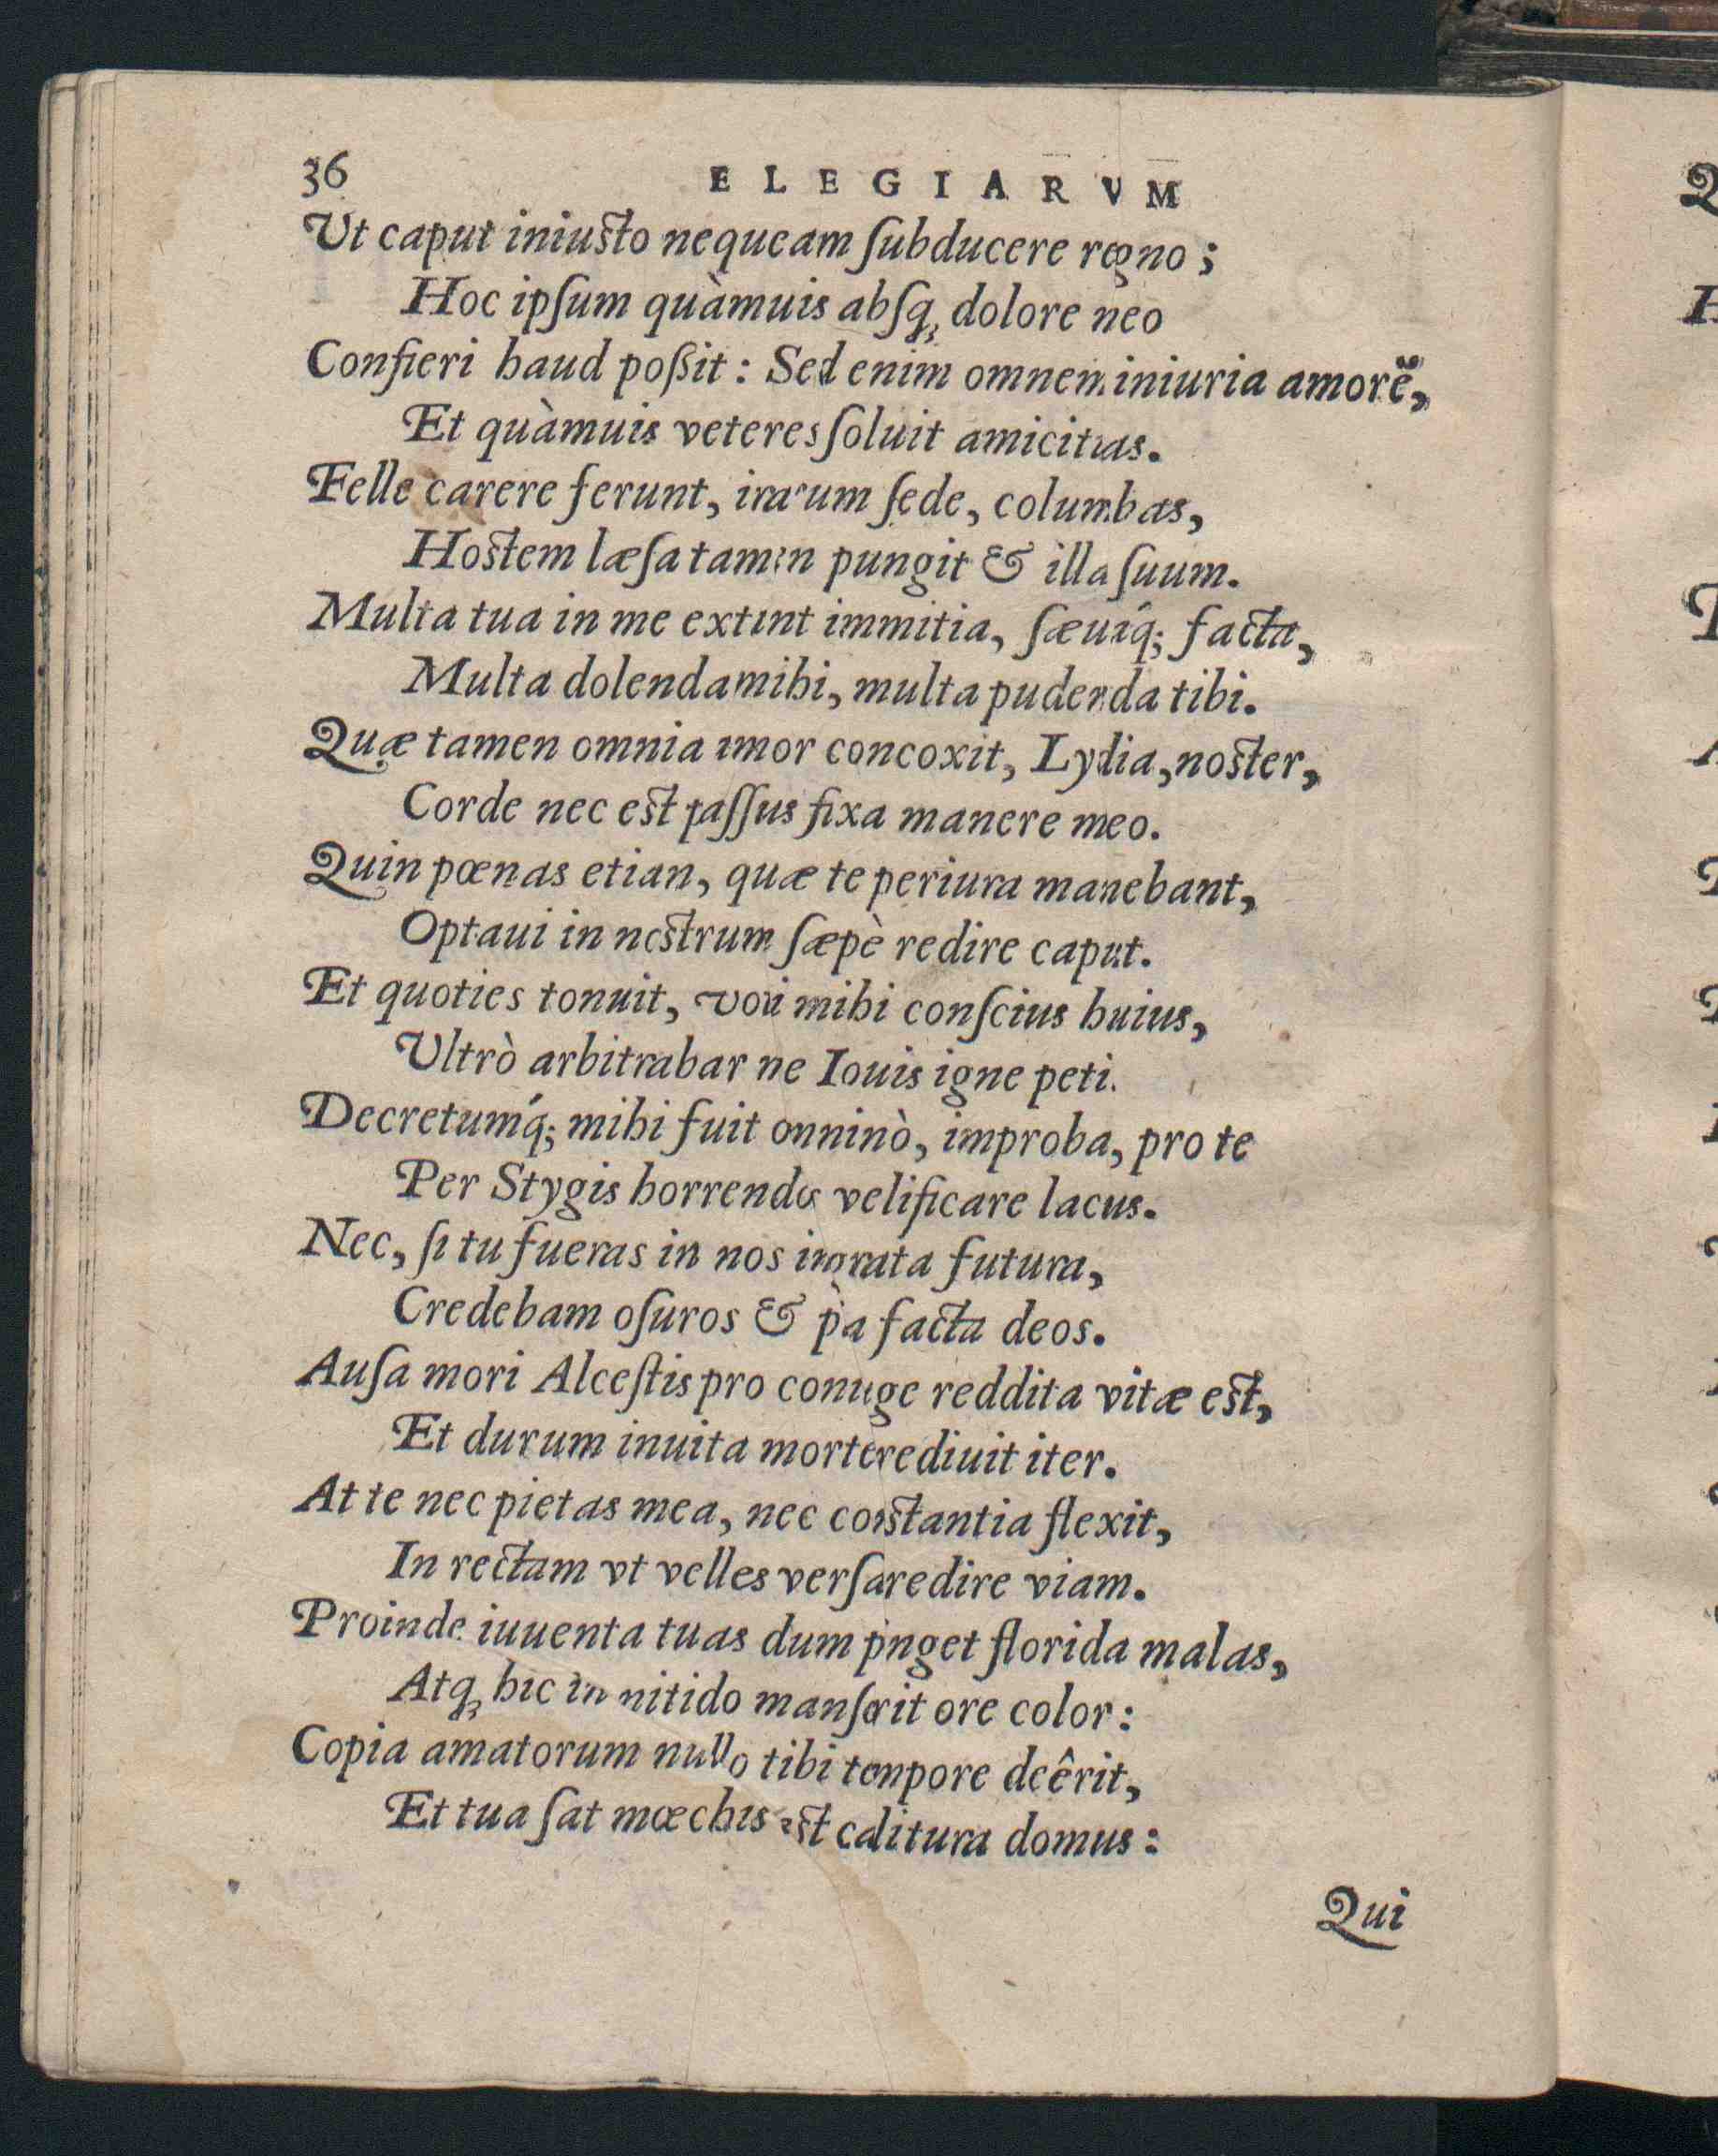 36 ELEGIARVM
Ut caput iniusto nequeam ſubducere regno;
Hoc ipſum quàmuis abſq; dolore neo
Confieri haud poßit: Sed enim omnem iniuria amorē,
Et quàmuis veteres ſoluit amicitias.
Felle carere ferunt, irarum ſede, columbas,
Hostem læſa tamen pungit & illa ſuum.
Multa tua in me extant immitia, ſæuáq; facta,
Multa dolenda mihi, multa pudenda tibi.
Quæ tamen omnia amor concoxit, Lydia, noster,
Corde nec est paſſus fixa manere meo.
Quin pœnas etiam, quæ te periura manebant,
Optaui in nostrum ſæpè redire caput.
Et quoties tonuit, voti mihi conſcius huius,
Ultrò arbitrabar me Iouis igne peti.
Decretumq́; mihi fuit omninò, improba, pro te
Per Stygis horrendos velificare lacus.
Nec, ſi tu fueras in nos ingrata futura,
Credebam oſuros & pia facta deos.
Auſa mori Alceſtis pro coniuge reddita vitæ est,
Et durum inuita morte rediuit iter.
At te nec pietas mea, nec constantia flexit,
In rectam vt velles verſa redire viam.
Proinde iuuenta tuas dum pinget florida malas,
Atq; hic in nitido manſerit ore color:
Copia amatorum nullo tibi tempore deêrit,
Et tua ſat mœchis est calitura domus:
Qui